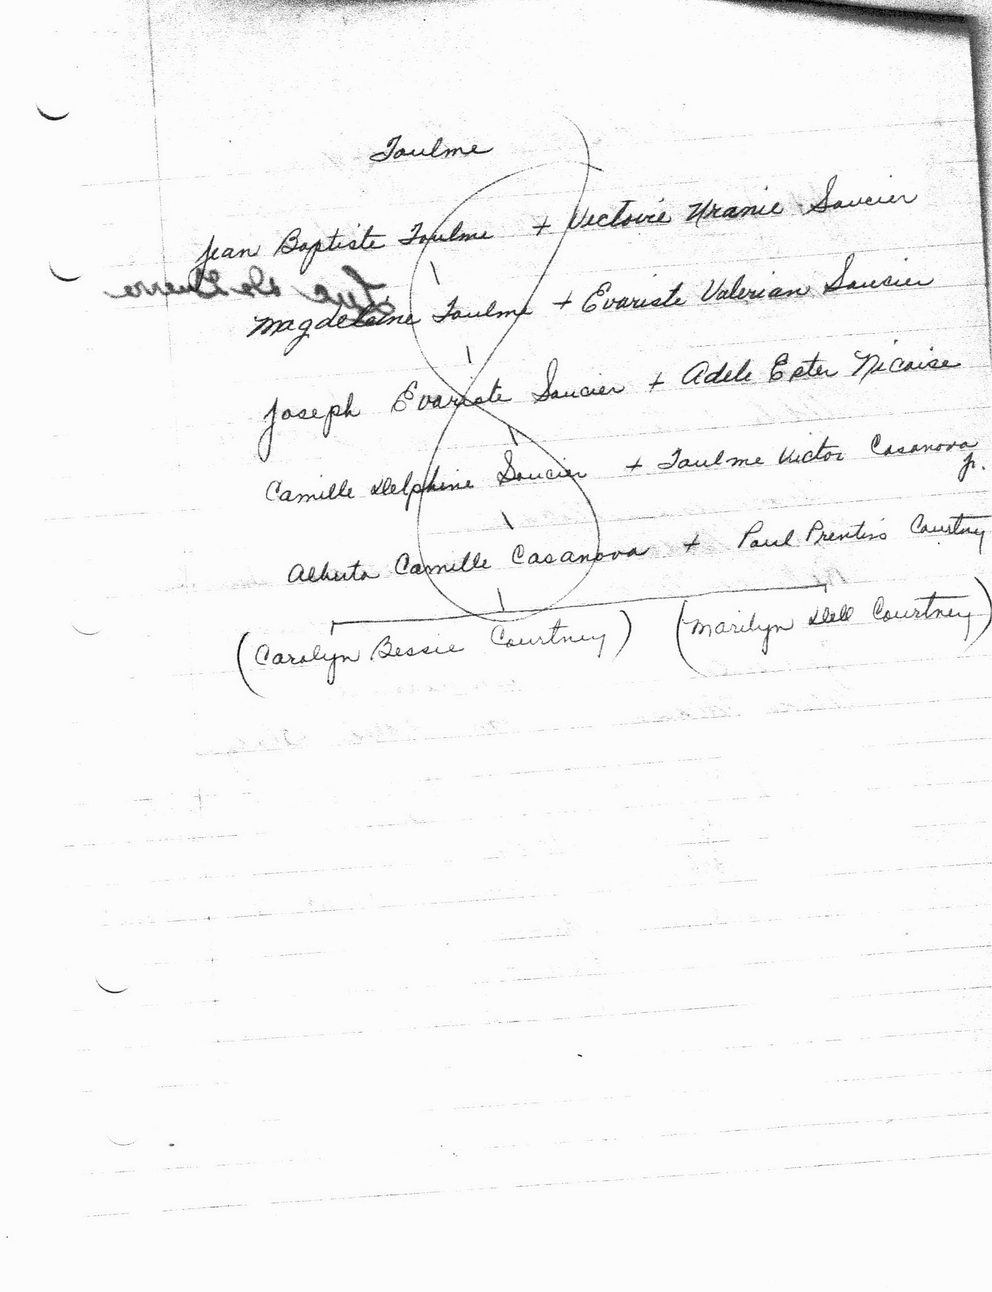 Toulme
Jean Baptiste Toulme + Victoire Uranie Saucier
Magdelaine Toulme + Evariste Valerian Saucier
Joseph Evariste Saucier + Adele Ester Nicaise
Camille Delphine Saucier + Toulme Victor Casanova Jr.
Alberta Camille Casanova + Paul Prentiss Courtney
(Carolyn Bessie Courtney) (Marilyn Dell Courtney)